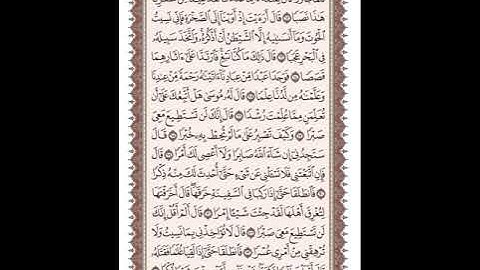 هَٰذَا نَصَبًا ۝ قَالَ أَرَءَيْتَ إِذْ أَوَيْنَآ إِلَى ٱلصَّخْرَةِ فَإِنِّي نَسِيتُ
ٱلْحُوتَ وَمَآ أَنسَىٰنِيهُ إِلَّا ٱلشَّيْطَٰنُ أَنْ أَذْكُرَهُۥ وَٱتَّخَذَ سَبِيلَهُۥ
فِي ٱلْبَحْرِ عَجَبًا ۝ قَالَ ذَٰلِكَ مَا كُنَّا نَبْغِ فَٱرْتَدَّا عَلَىٰٓ ءَاثَارِهِمَا
قَصَصًا ۝ فَوَجَدَا عَبْدًا مِّنْ عِبَادِنَآ ءَاتَيْنَٰهُ رَحْمَةً مِّنْ عِندِنَا
وَعَلَّمْنَٰهُ مِن لَّدُنَّا عِلْمًا ۝ قَالَ لَهُۥ مُوسَىٰ هَلْ أَتَّبِعُكَ عَلَىٰٓ أَن
تُعَلِّمَنِ مِمَّا عُلِّمْتَ رُشْدًا ۝ قَالَ إِنَّكَ لَن تَسْتَطِيعَ مَعِيَ
صَبْرًا ۝ وَكَيْفَ تَصْبِرُ عَلَىٰ مَا لَمْ تُحِطْ بِهِۦ خُبْرًا ۝ قَالَ
سَتَجِدُنِيٓ إِن شَآءَ ٱللَّهُ صَابِرًا وَلَآ أَعْصِي لَكَ أَمْرًا ۝ قَالَ
فَإِنِ ٱتَّبَعْتَنِي فَلَا تَسْـَٔلْنِي عَن شَيْءٍ حَتَّىٰٓ أُحْدِثَ لَكَ مِنْهُ ذِكْرًا
۝ فَٱنطَلَقَا حَتَّىٰٓ إِذَا رَكِبَا فِي ٱلسَّفِينَةِ خَرَقَهَا قَالَ أَخَرَقْتَهَا
لِتُغْرِقَ أَهْلَهَا لَقَدْ جِئْتَ شَيْـًٔا إِمْرًا ۝ قَالَ أَلَمْ أَقُلْ إِنَّكَ
لَن تَسْتَطِيعَ مَعِيَ صَبْرًا ۝ قَالَ لَا تُؤَاخِذْنِي بِمَا نَسِيتُ وَلَا
تُرْهِقْنِي مِنْ أَمْرِي عُسْرًا ۝ فَٱنطَلَقَا حَتَّىٰٓ إِذَا لَقِيَا غُلَٰمًا فَقَتَلَهُۥ